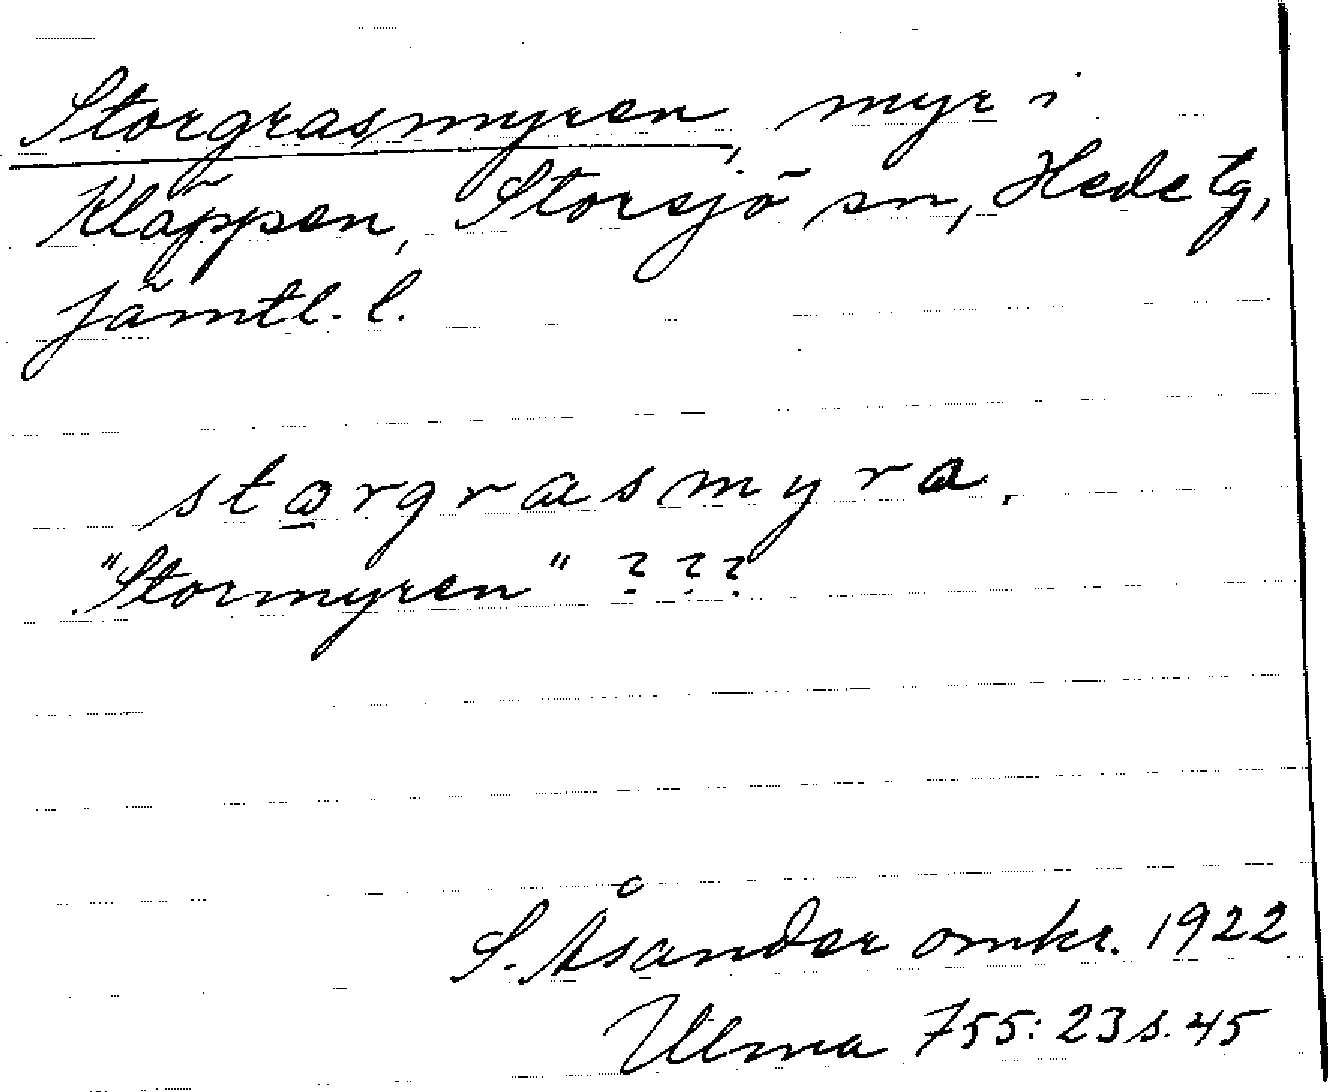 Storgrasmyren, myr i
Kläppen, Storsjö sn, Hede tg,
Jämtl. l.
storgrasmyra.
"Stormyren" ???
S. Åsander omkr. 1922
Ulma 755: 23 s. 45